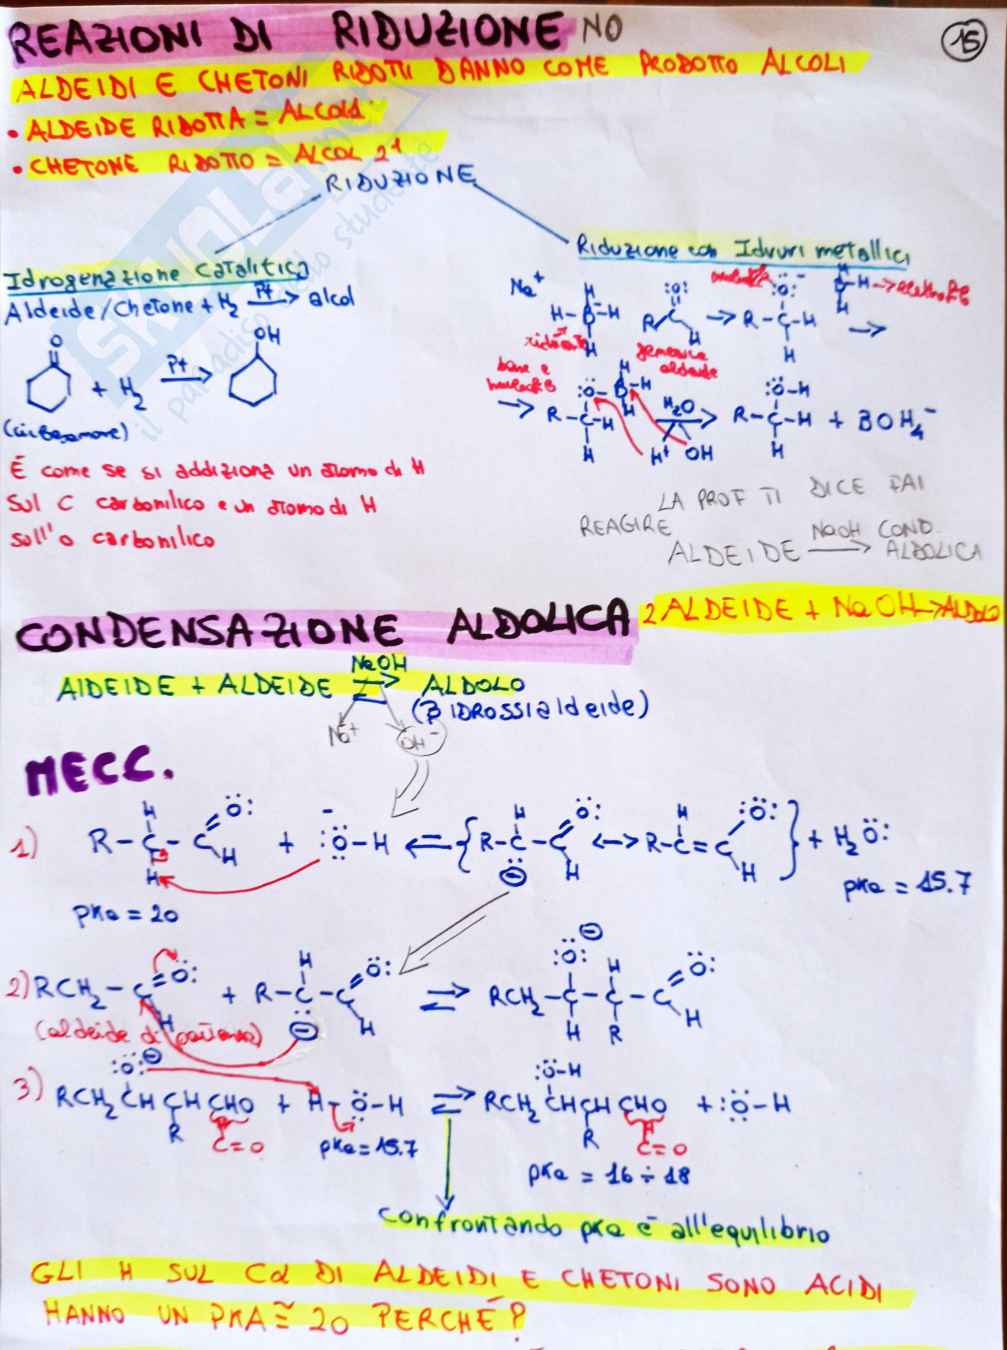 REAZIONI DI RIDUZIONE NO
15
ALDEIDI E CHETONI RIDOTTI DANNO COME PRODOTTO ALCOLI
• ALDEIDE RIDOTTA =
• CHETONE RIDOTTO = ALCOL 2°
RIDUZIONE
Idrogenazione catalitica
Aldeide/Chetone + H2 Pt → alcol
O
OH
+ H2 Pt →
È come se si addiziona un atomo di H
sul C carbonilico e un atomo di H
sull'o carbonilico
Riduzione con Idruri metallici
Na+
H
H-B-H
H
:O:
R-C
H
→
:Ö:-
R-C-H
H
H
B-H
→
generica
aldeide
base e
→
:Ö-B-H
R-C-H
H
H2O
→
H+ OH
:Ö-H
R-C-H
H
+ BOH4-
LA PROF TI DICE FAI
REAGIRE
ALDEIDE NaOH → COND. ALDOLICA
CONDENSAZIONE ALDOLICA
2 ALDEIDE + NaOH → ALDOLO
AlDEIDE + ALDEIDE NaOH ⇌ ALDOLO
(β IDROSSIaldeide)
Na+ OH-
MECC.
1)
R-C-C
H
H
O:
H
+ :Ö-H ⇌
{R-C-C
H
O:
H
⊖
↔
R-C=C
H
:Ö:
H
} + H2Ö:
pKa = 20
pKa = 15.7
2) RCH2-C
=Ö:
H
+ R-C-C
H
⊖
Ö:
H
⇌
RCH2-C-C-C
:Ö: ⊖
H
H
R
Ö:
H
(aldeide di partenza)
3)
:Ö: ⊖
RCH2CHCHCHO + H-Ö-H ⇌
R
C=O
pKa = 15.7
:Ö-H
RCH2CHCHCHO + :Ö-H
R
C=O
pKa = 16 ÷ 18
Confrontando pKa è all'equilibrio
GLI H SUL Cα DI ALDEIDI E CHETONI SONO ACIDI
HANNO UN PKA ≅ 20 PERCHÉ?